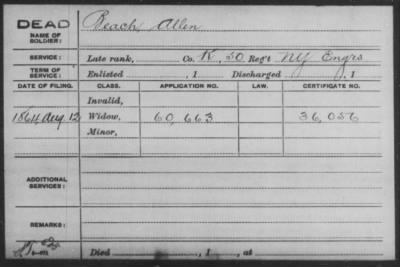 DEAD Beach, Allen
NAME OF SOLDIER:
SERVICE: Late rank, Co. K, 50 Reg't NY Engrs
TERM OF SERVICE: Enlisted , 1 Discharged , 1
DATE OF FILING. CLASS. APPLICATION NO. LAW. CERTIFICATE NO.
Invalid,
1864 Aug. 12 Widow, 60,663 36,056
Minor,
ADDITIONAL SERVICES:
REMARKS:
Died , 1 , at